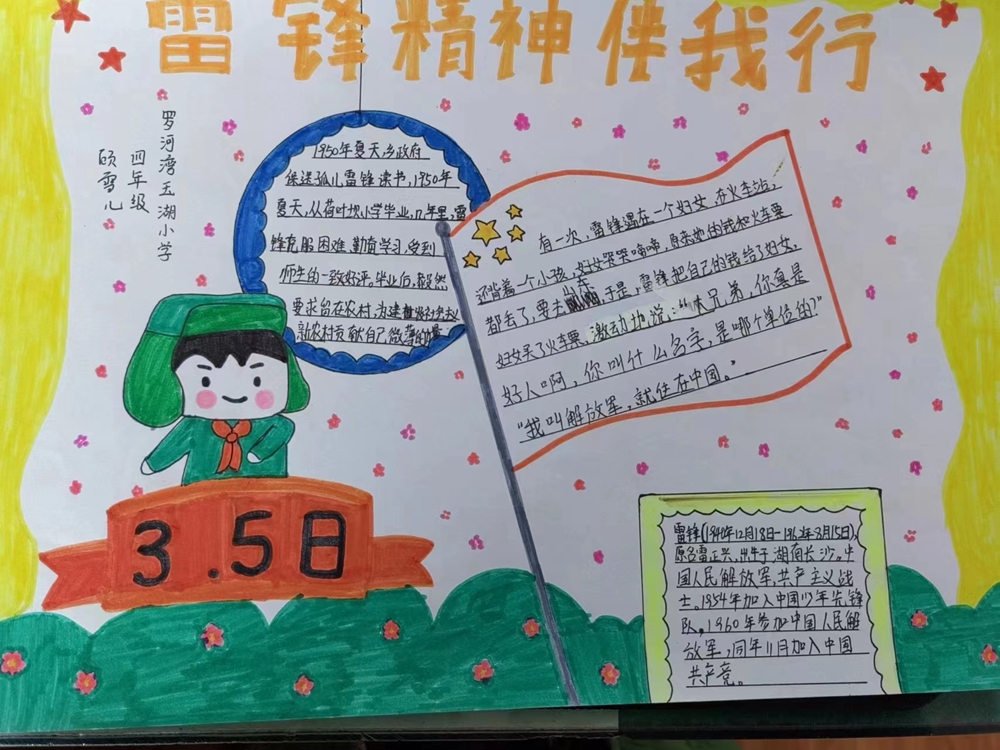 雷锋精神伴我行
罗河湾玉湖小学
四年级
顾雪儿
1950年夏天乡政府
保送孤儿雷锋读书,1950年
夏天,从荷叶坝小学毕业,几年里,雷
锋克服困难,勤奋学习,受到
师生的一致好评。毕业后,毅然
要求留在农村,为建设社会主义
新农村贡献自己微薄的力量
有一次,雷锋遇在一个妇女,在火车站,
还背着一个小孩,妇女哭哭啼啼,原来她的钱和火车票
都丢了,要去山东,于是,雷锋把自己的钱给了妇女,
妇女买了火车票,激动地说:“大兄弟,你真是
好人啊,你叫什么名字,是哪个单位的?”
“我叫解放军,就住在中国。”
3.5日
雷锋(1940年12月18日-1962年8月15日),
原名雷正兴,出生于湖南长沙。中
国人民解放军,共产主义战
士。1954年加入中国少年先锋
队。1960年参加中国人民解
放军,同年11月加入中国
共产党。